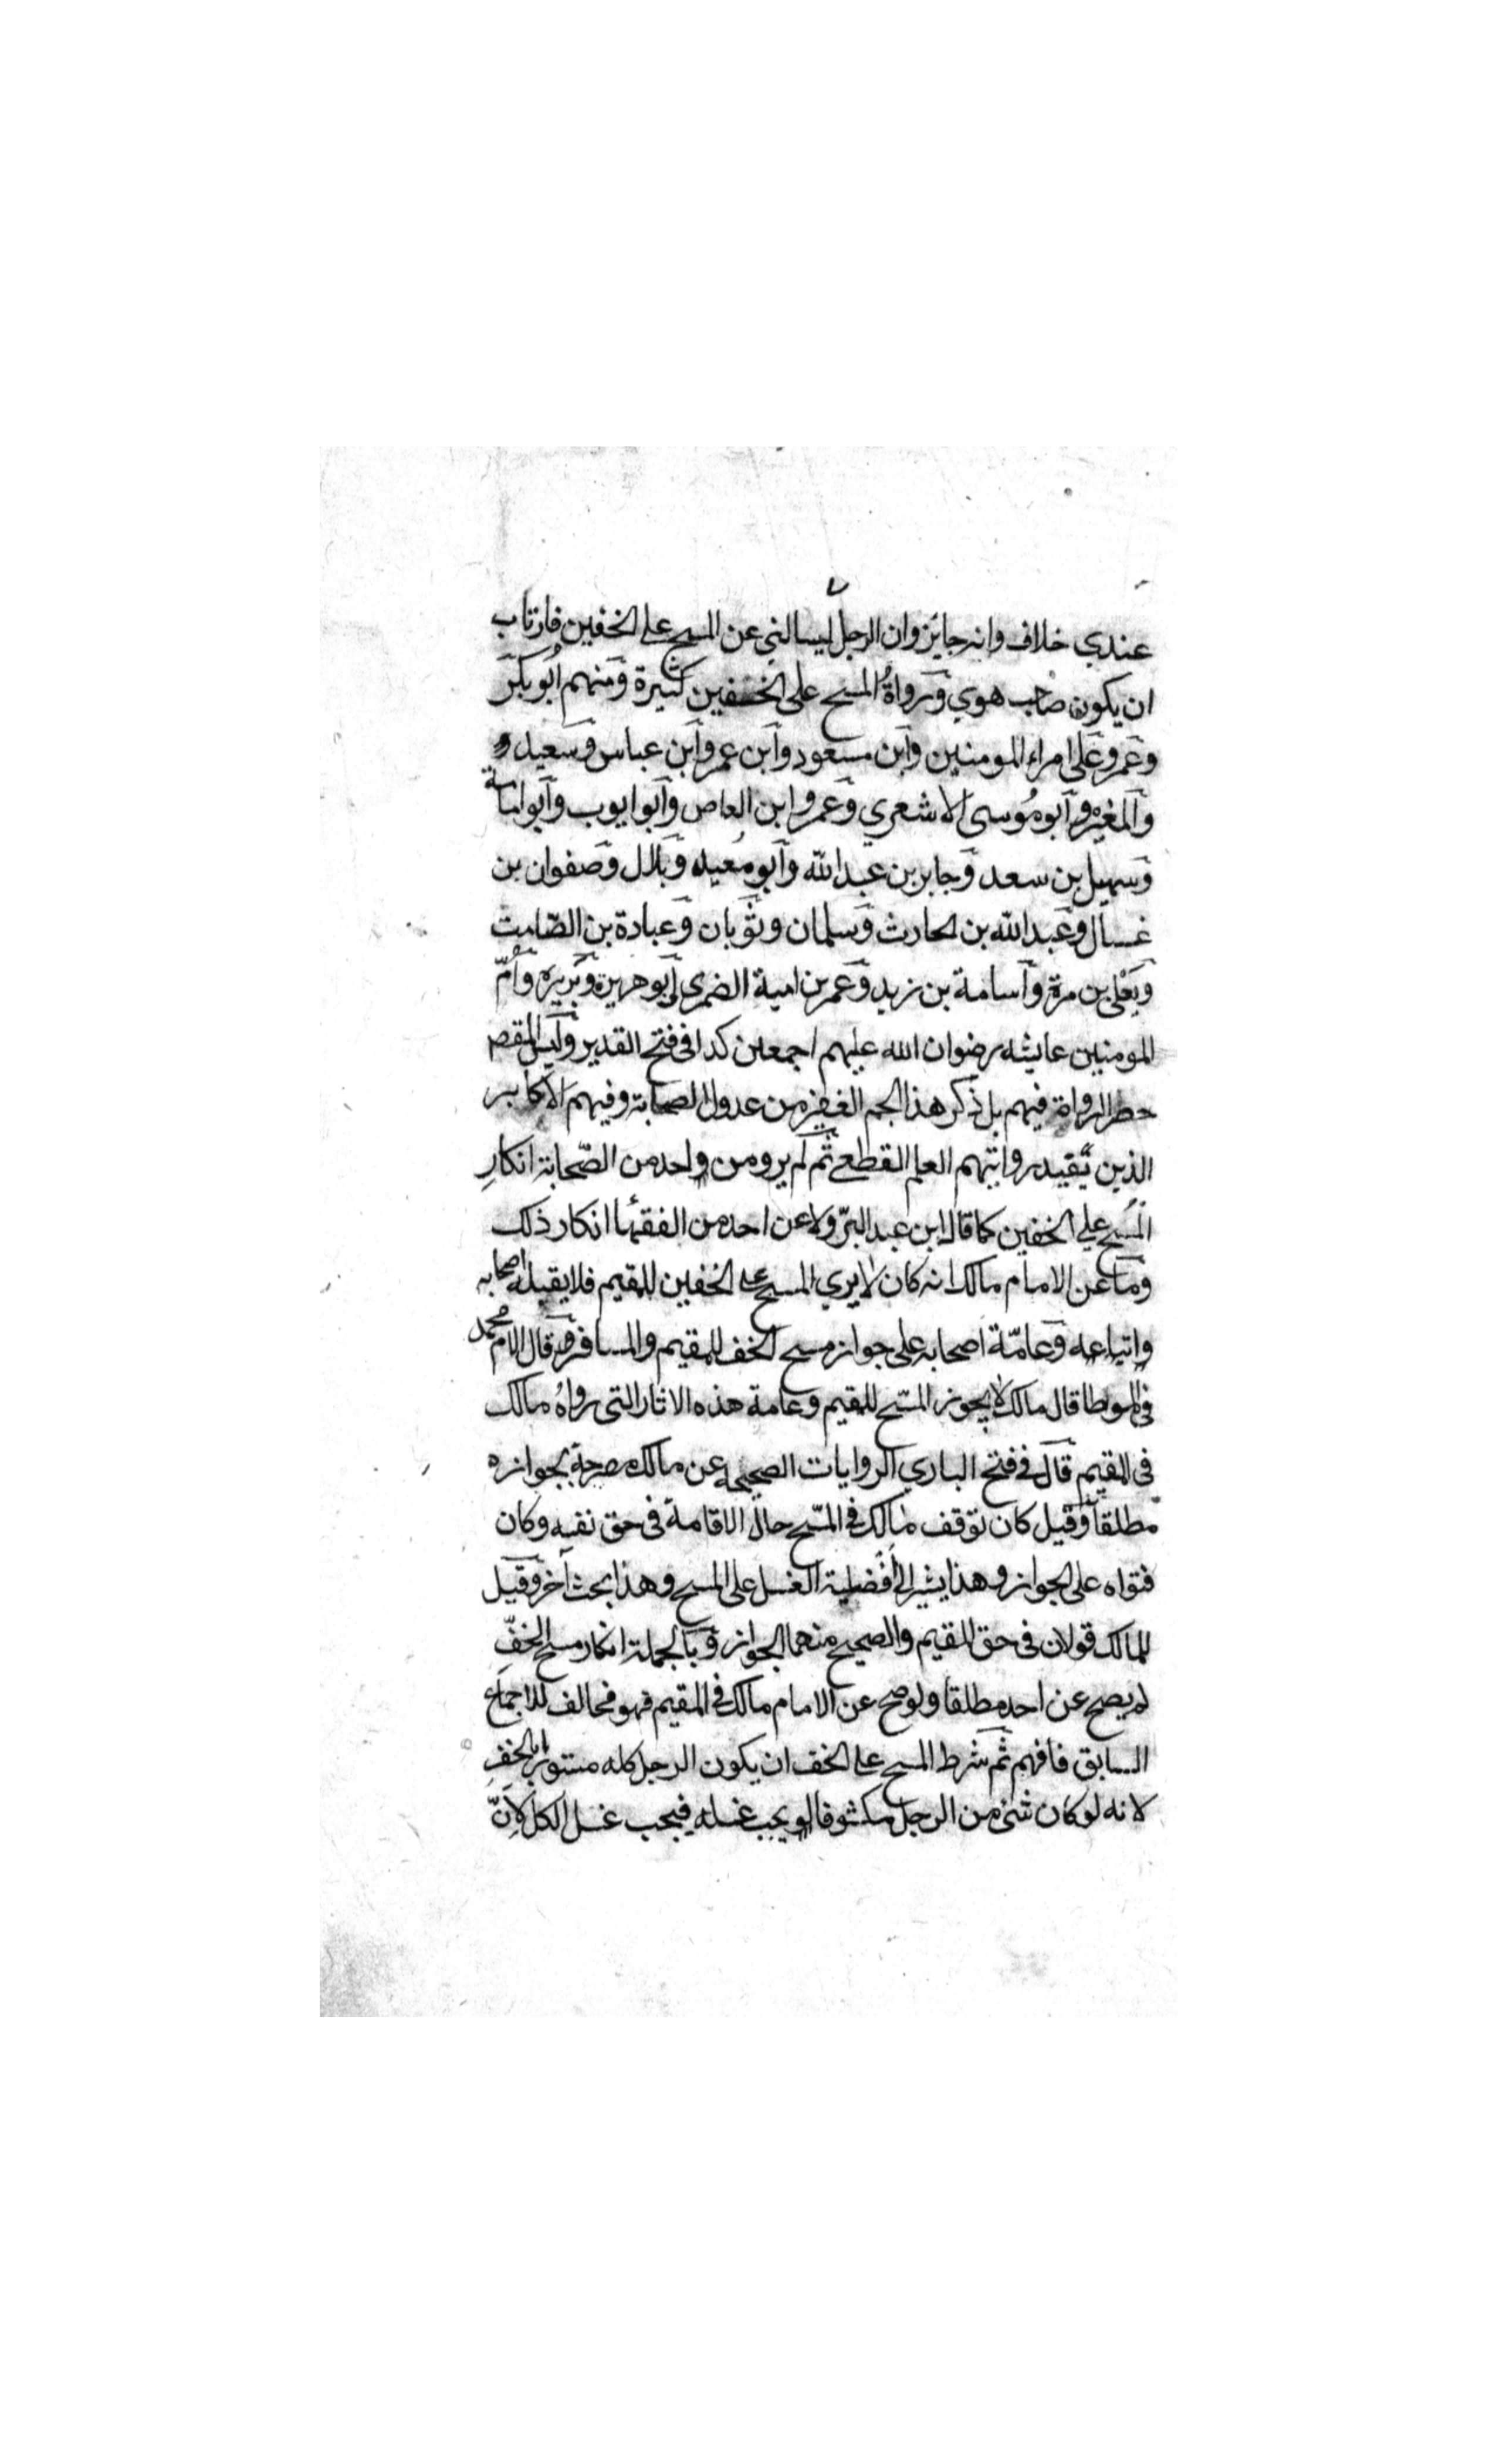 ٧
عندي خلاف وانه جايز وان الرجل ليسالني عن المسح على الخفين فارتاب
ان يكون صاحب هوي ورواة المسح على الخفين كثيرة ومنهم ابو بكر
وعمر وعلى امراء المومنين وابن مسعود وابن عمر وابن عباس وسعيد و
والمغيره وابو موسى الاشعري وعمرو ابن العاص وابو ايوب وابو امامة
وسهيل بن سعد وجابر بن عبد الله وابو سعيد وبلال وصفوان بن
غسال وعبد الله بن الحارث وسلمان وثوبان وعبادة بن الصّامت
ويعلى بن مرة واسامة بن زيد وعمر بن امية الضمرى ابو هريرة وبريره وامّ
المومنين عايشه رضوان الله عليهم اجمعين كذا فى فتح القدير وليس المقصد
حظر الرواة فيهم بل ذكر هذا الجم الغفير من عدول الصحابة وفيهم الاكابر
الذين يفيد روايتهم العلم القطعي ثم لم يرو من واحد من الصّحابة انكار
المسح علي الخفين كما قال ابن عبد البرّ ولا عن احد من الفقهاا انكار ذلك
وما عن الامام مالك انه كان لا يري المسح على الخفين للمقيم فلا يقبله اصحابه
واتباعه وعامّة اصحابه على جواز مسح الخف للمقيم والمسافر وقال الامام محمد
في الموطا قال مالك لا يجوز المسّح للمقيم وعامة هذه الاثار التى رواهُ مالك
فى المقيم قال فى فتح البارى الروايات الصحيحه عن مالك مصرحة بجوازه
مطلقا وقيل كان توقف مالك فى المسّح حال الاقامة فى حق نفسه وكان
فتواه على الجواز وهذا يشير الى افضلية الغسل على المسح وهذا بحث آخر وقيل
لمالك قولان فى حق المقيم والصحيح منهما الجواز وبالجملة انكار مسح الخفّ
لم يصح عن احد مطلقا ولو صح عن الامام مالك فى المقيم فهو مخالف للاجماع
السابق فافهم ثم شرط المسح على الخف ان يكون الرجل كله مستورا بالخف
لانه لو كان شئ من الرجل مكشوفا يجب غسله فيجب غسل الكل لانّ